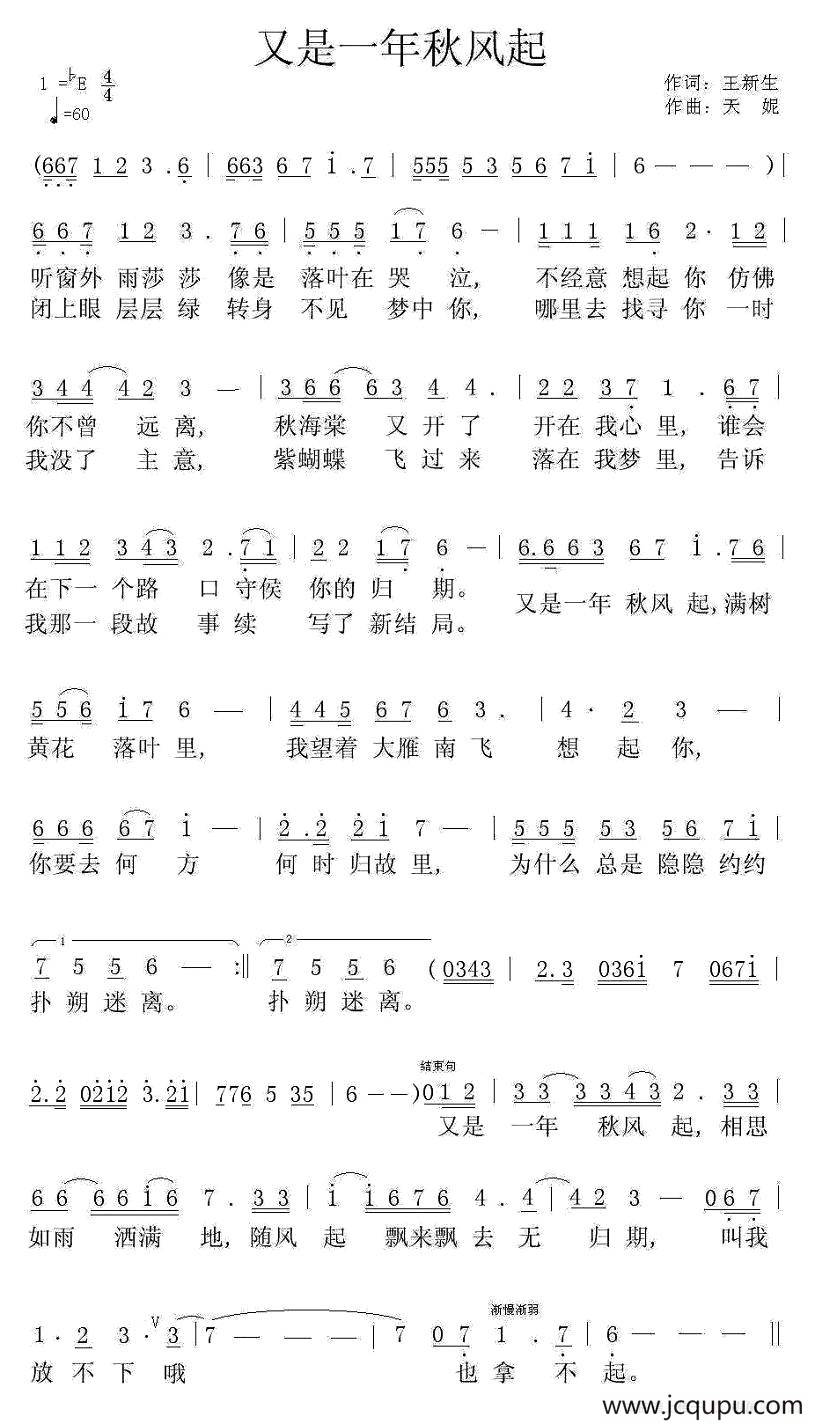 又是一年秋风起
1=♭E 4/4
♩=60
作词：王新生
作曲：天 妮
(667 1 2 3 .6 | 663 6 7 i .7 | 555 5 3 5 6 7 i | 6 — — — )|
6 6 7 1 2 3 . 7 6 | 5 5 5 1 7 6 — | 1 1 1 1 6 2 · 1 2 |
听窗外 雨莎 莎 像是 落叶在 哭 泣， 不经意 想起 你 仿佛
闭上眼 层层 绿 转身 不见 梦中 你， 哪里去 找寻 你 一时
3 4 4 4 2 3 — | 3 6 6 6 3 4 4 . | 2 2 3 7 1 . 6 7 |
你不曾 远 离， 秋海棠 又 开 了 开在 我心 里，谁会
我没了 主 意， 紫蝴蝶 飞 过 来 落在 我梦 里，告诉
1 1 2 3 4 3 2 . 7 1 | 2 2 1 7 6 — | 6.6 6 3 6 7 i .7 6 |
在下一 个路 口 守侯 你的 归 期。 又是一年 秋风 起,满树
我那一 段故 事 续 写了 新结 局。
5 5 6 i 7 6 — | 4 4 5 6 7 6 3 . | 4 · 2 3 — |
黄花 落叶 里， 我望着 大雁 南 飞 想 起 你，
6 6 6 6 7 i — | 2 .2 2 i 7 — | 5 5 5 5 3 5 6 7 i |
你要去 何 方 何 时 归故 里， 为什么 总是 隐隐 约约
1 2
7 5 5 6 — :‖ 7 5 5 6 (0343 | 2.3 036i 7 067i |
扑 朔 迷 离。 扑 朔 迷 离。
结束句
2.2 02i2 3.2i | 776 5 35 | 6 — — )0 1 2 | 3 3 3 3 4 3 2 . 3 3 |
又是 一年 秋风 起, 相思
6 6 6 6 i 6 7 . 3 3 | i i 6 7 6 4 . 4 | 4 4 2 3 — 0 6 7 |
如雨 洒满 地, 随风 起 飘来飘 去 无 归 期, 叫我
渐慢渐弱
1 · 2 3 · V 3 | 7 — — — | 7 0 7 1 . 7 | 6 — — — ‖
放 不 下 哦 也 拿 不 起。
www.jcqupu.com